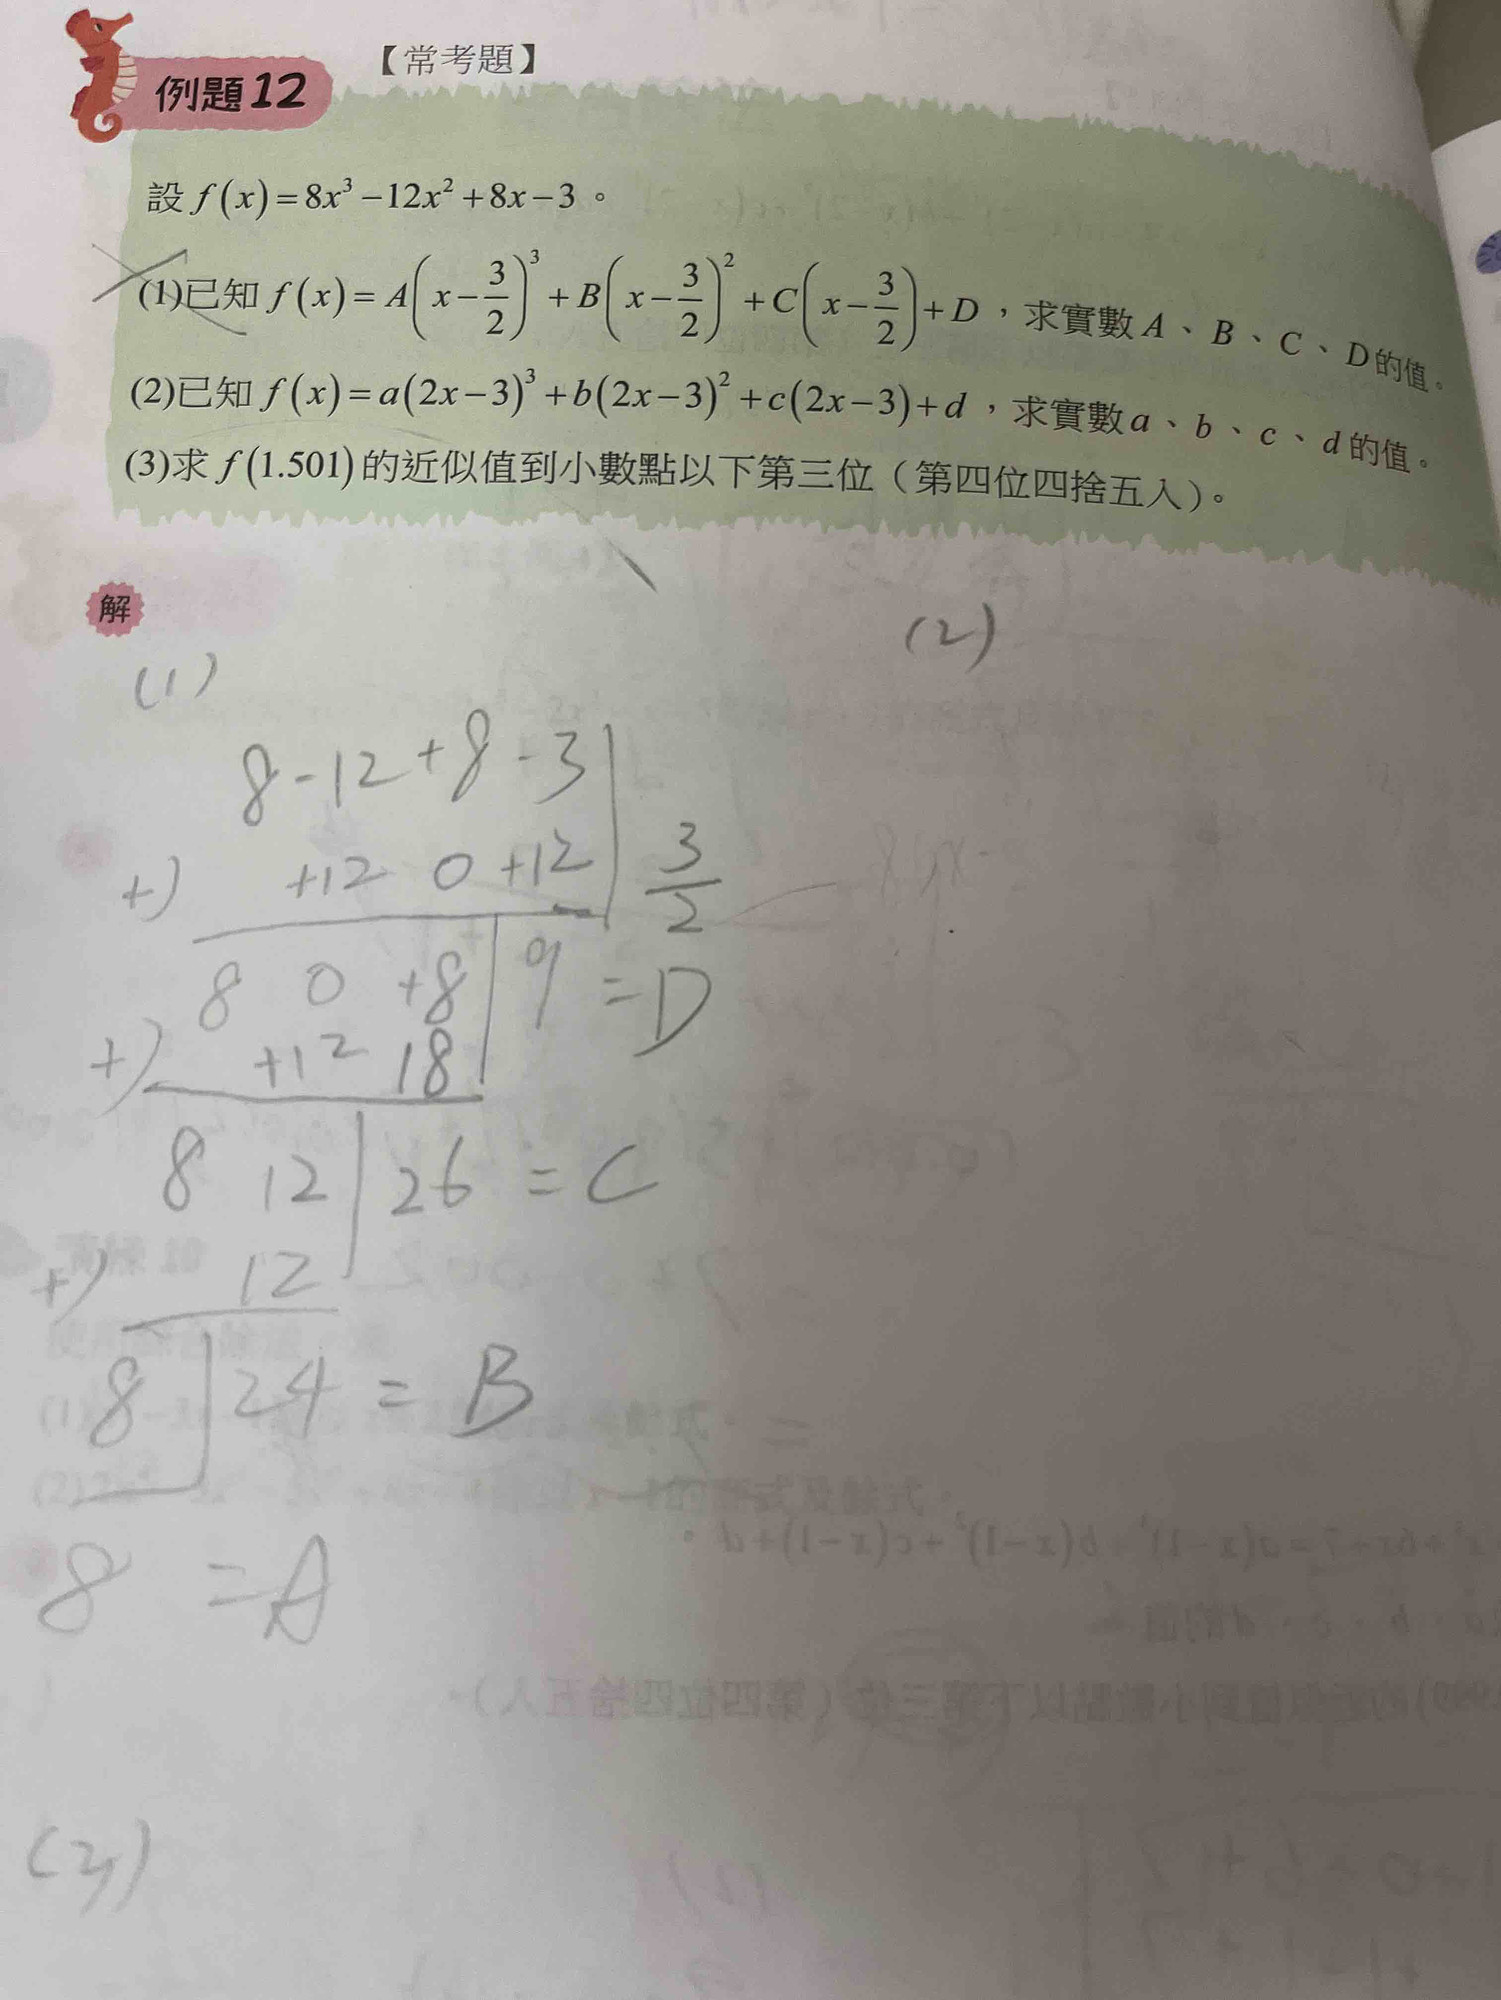 【常考題】
例題12
設 f(x)=8x³-12x²+8x-3。
(1)已知 f(x)=A(x-3/2)³+B(x-3/2)²+C(x-3/2)+D，求實數A、B、C、D的值。
(2)已知 f(x)=a(2x-3)³+b(2x-3)²+c(2x-3)+d，求實數a、b、c、d的值。
(3)求 f(1.501)的近似值到小數點以下第三位（第四位四捨五入）。
解
(1)
8-12+8-3
+) +12 0 +12 3/2
8 0 +8 9 =D
+) +12 18
8 12 26 =C
+) 12
8 24 =B
8 =A
(2)
(3)